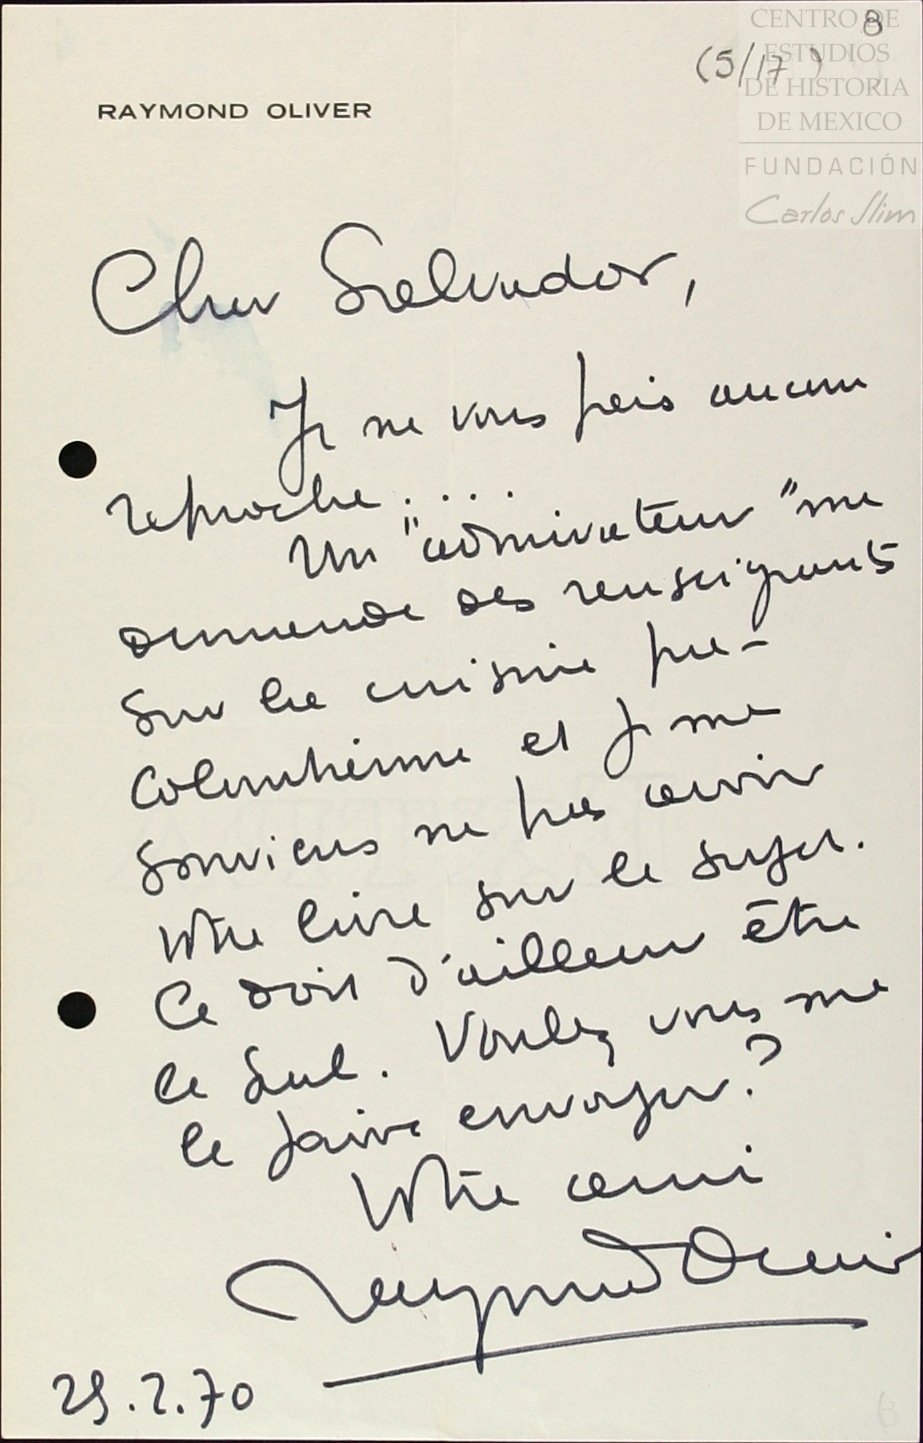 8
(5/17)
CENTRO DE
ESTUDIOS
DE HISTORIA
DE MEXICO
FUNDACIÓN
Carlos Slim
RAYMOND OLIVER
Cher Salvador,
Je ne vous fais aucun
reproche....
Un "admirateur" me
demande des renseignants
sur la cuisine pre-
colombienne et je me
souviens ne pas avoir
votre livre sur le sujet.
Ce doit d'ailleur être
le seul. Voulez vous me
le faire envoyer?
Votre ami
Raymond Oliver
29.2.70